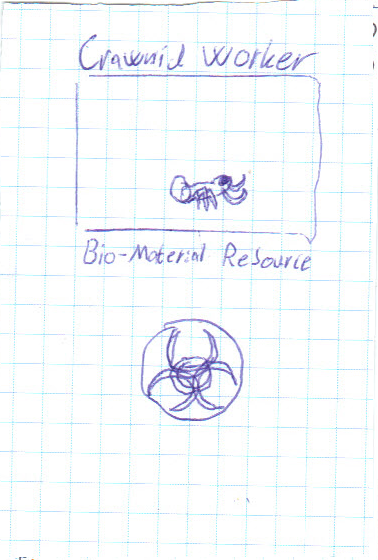 Crawnid Worker
Bio-Material Resource